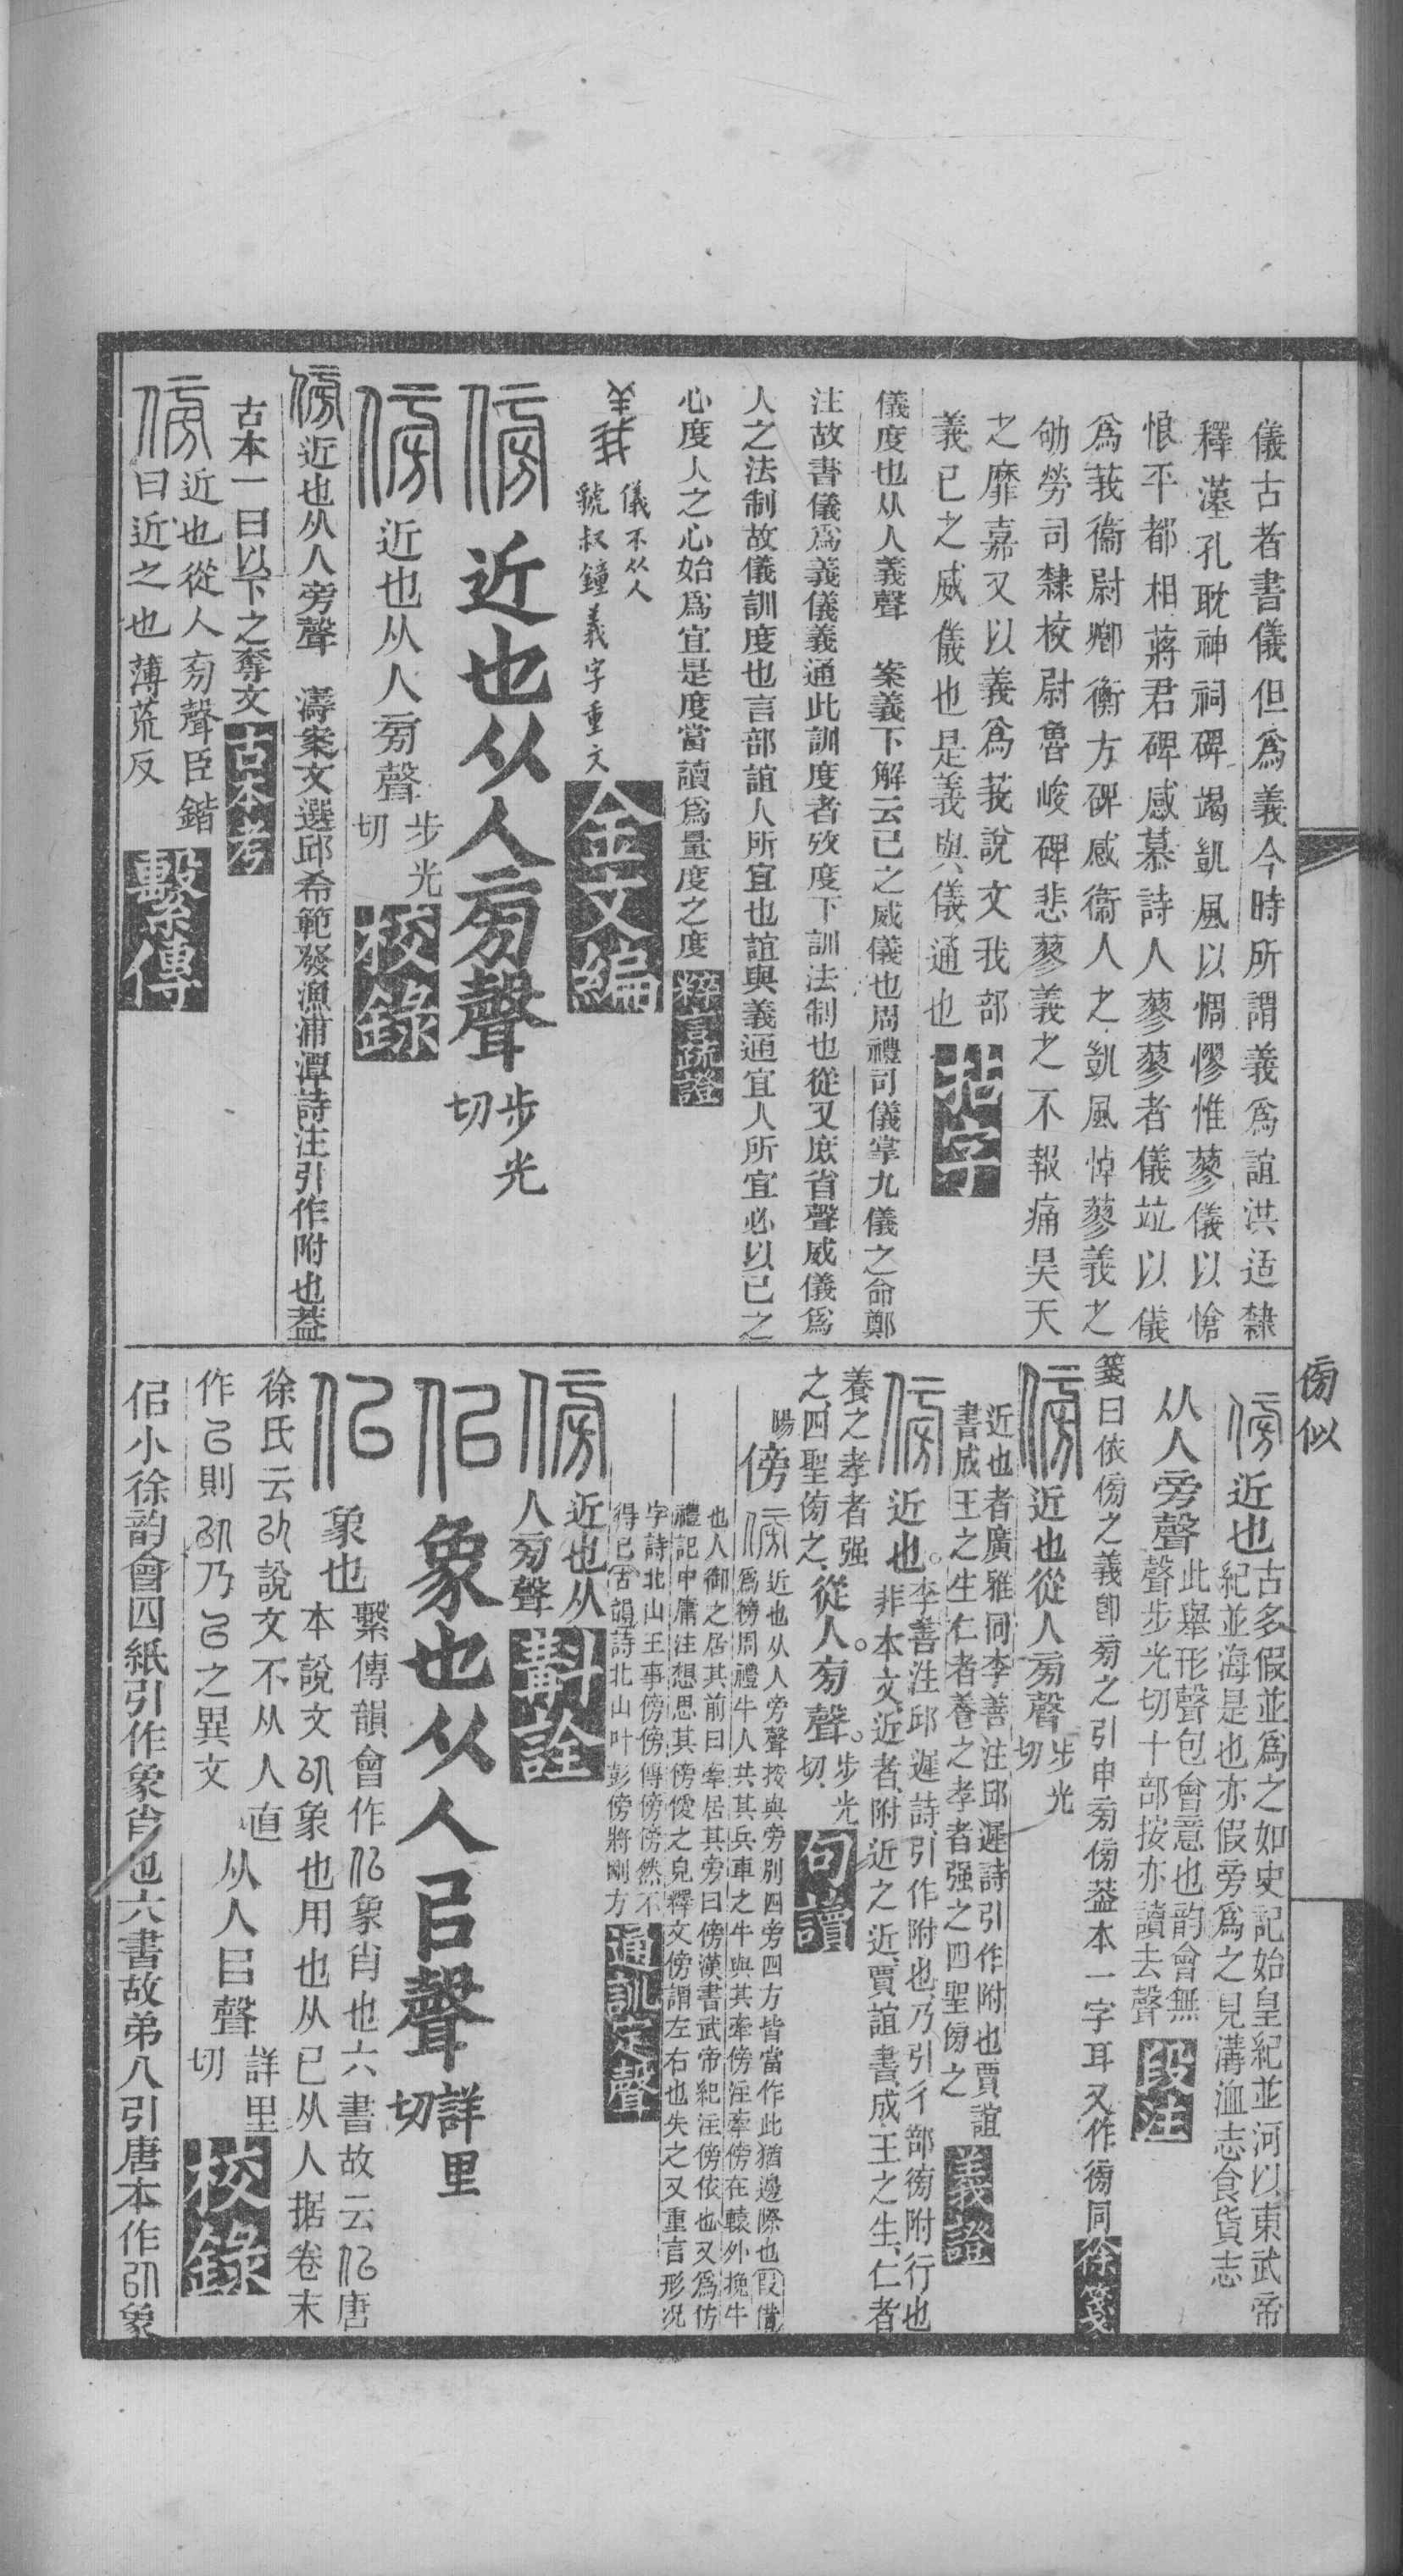 儀古者書儀但爲義今時所謂義爲誼洪适隸
釋漢孔耽神祠碑竭凱風以惆憀惟蓼儀以愴
悢平都相蔣君碑感慕詩人蓼蓼者儀竝以儀
爲莪衞尉卿衡方碑感衞人之凱風悼蓼義之
劬勞司隸校尉魯峻碑悲蓼義之不報痛昊天
之靡嘉又以義爲莪說文我部
義已之威儀也是義與儀通也
拈字
儀度也从人義聲 案義下解云已之威儀也周禮司儀掌九儀之命鄭
注故書儀爲義儀義通此訓度者攷度下訓法制也從又庶省聲威儀爲
人之法制故儀訓度也言部誼人所宜也誼與義通宜人所宜必以已之
心度人之心始爲宜是度當讀爲量度之度 粹言疏證
儀不从人
虢叔鐘義字重文
金文編
傍 近也从人㫄聲 步光切
傍 近也从人㫄聲 步光切 校錄
傍近也从人旁聲 濤案文選邱希範發漁浦潭詩注引作附也葢
古本一曰以下之奪文 古本考
傍 近也從人㫄聲臣鍇
曰近之也薄荒反 繫傳
傍似
傍近也 古多假並爲之如史記始皇紀並河以東武帝
紀並海是也亦假旁爲之見溝洫志食貨志
从人旁聲 此舉形聲包會意也韵會無
聲步光切十部按亦讀去聲 段注
箋曰依傍之義卽㫄之引申㫄傍葢本一字耳又作徬同 徐箋
傍近也從人㫄聲 步光切
近也者廣雅同李善注邱遲詩引作附也賈誼
書成王之生仁者養之孝者强之四聖傍之 義證
傍近也。李善注邱遲詩引作附也乃引彳部徬附行也
非本文近者附近之近賈誼書成王之生仁者
養之孝者强
之四聖傍之 從人。㫄聲。步光切 句讀
暘 傍 傍 近也从人旁聲按與旁別四旁四方皆當作此猶邊際也叚借
爲徬周禮牛人共其兵車之牛與其牽傍注牽傍在轅外挽牛
也人御之居其前曰牽居其旁曰傍漢書武帝紀注傍依也又爲仿
禮記中庸注想思其傍僾之皃釋文傍謂左右也失之又重言形況
字詩北山王事傍傍傳傍傍然不
得已古韻詩北山叶彭傍將剛方 通訓定聲
傍 近也从
人㫄聲 斠詮
佀 象也从人㠯聲 詳里切
佀 象也 繫傳韻會作佀象肖也六書故云佀唐
本說文㕥象也用也从已从人据卷末
徐氏云㕥說文不从人直
作㠯則㕥乃㠯之異文 从人㠯聲 詳里切 校錄
佀小徐韵會四紙引作象肖也六書故弟八引唐本作㕥象